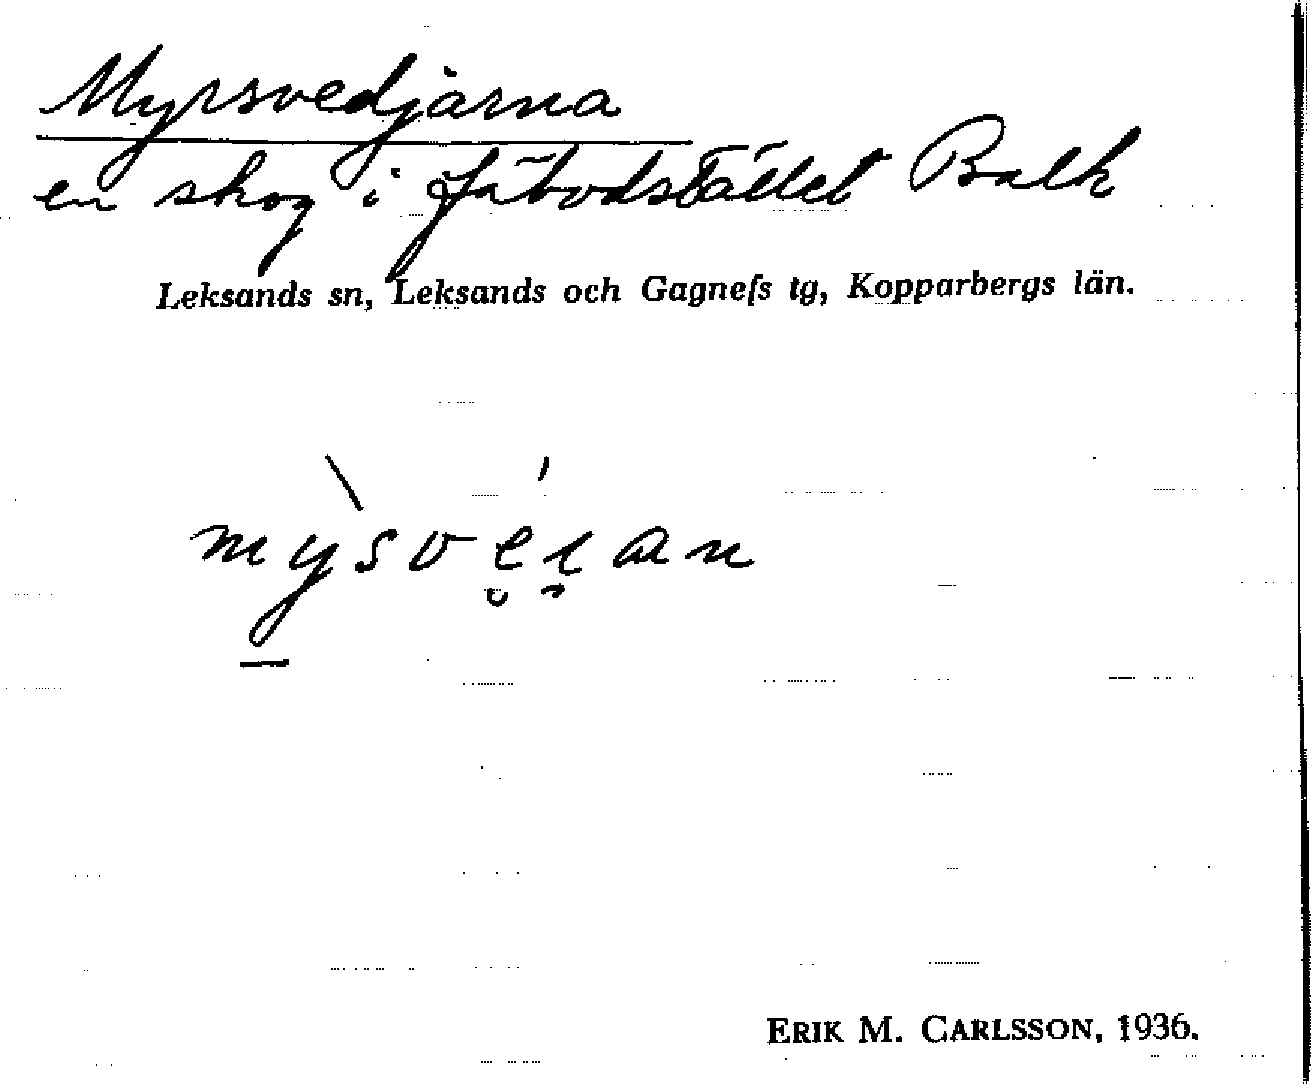 Myrsvedjärna
en skog i fäbodstället Balk
Leksands sn, Leksands och Gagnefs tg, Kopparbergs län.
mỳsvéɩan
ERIK M. CARLSSON, 1936.